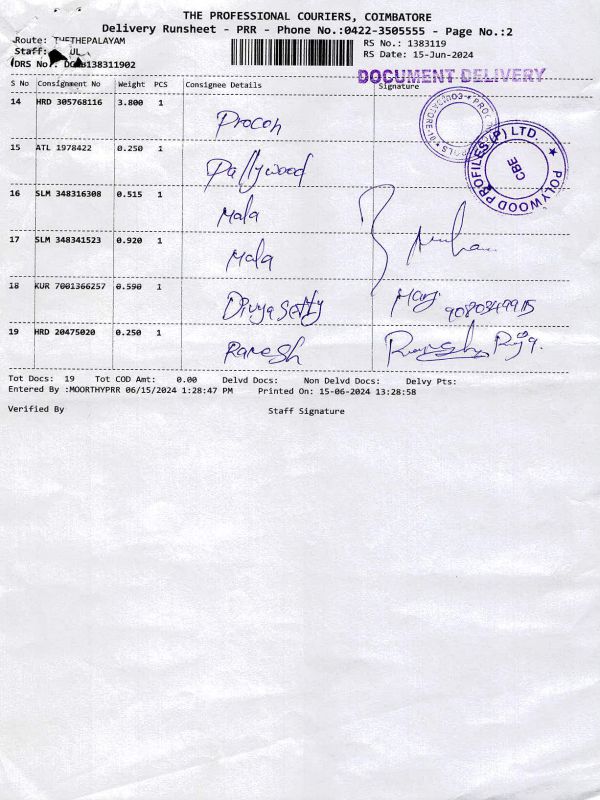 THE PROFESSIONAL COURIERS, COIMBATORE
Delivery Runsheet - PRR - Phone No.:0422-3505555 - Page No.:2
Route: THETHEPALAYAM
RS No.: 1383119
Staff:
RS Date: 15-Jun-2024
DRS No.: 138311902
DOCUMENT DELIVERY
S No Consignment No Weight PCS Consignee Details Signature
14 HRD 305768116 3.800 1 Procon
15 ATL 1978422 0.250 1 Pallywood
POLYWOOD PROFILES (P) LTD.
CBE
16 SLM 348316308 0.515 1 Mala
17 SLM 348341523 0.920 1 Mala
18 KUR 7001366257 0.590 1 Divya Setty
19 HRD 20475020 0.250 1 Ramesh
Tot Docs: 19 Tot COD Amt: 0.00 Delvd Docs: Non Delvd Docs: Delvy Pts:
Entered By :MOORTHYPRR 06/15/2024 1:28:47 PM Printed On: 15-06-2024 13:28:58
Verified By Staff Signature